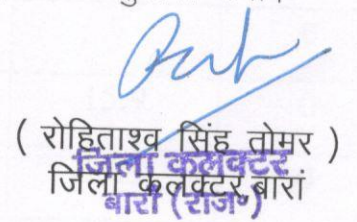 ( रोहिताश्व सिंह तोमर )
जिला कलक्टर
जिला कलक्टर, बारां
बारां (राज०)